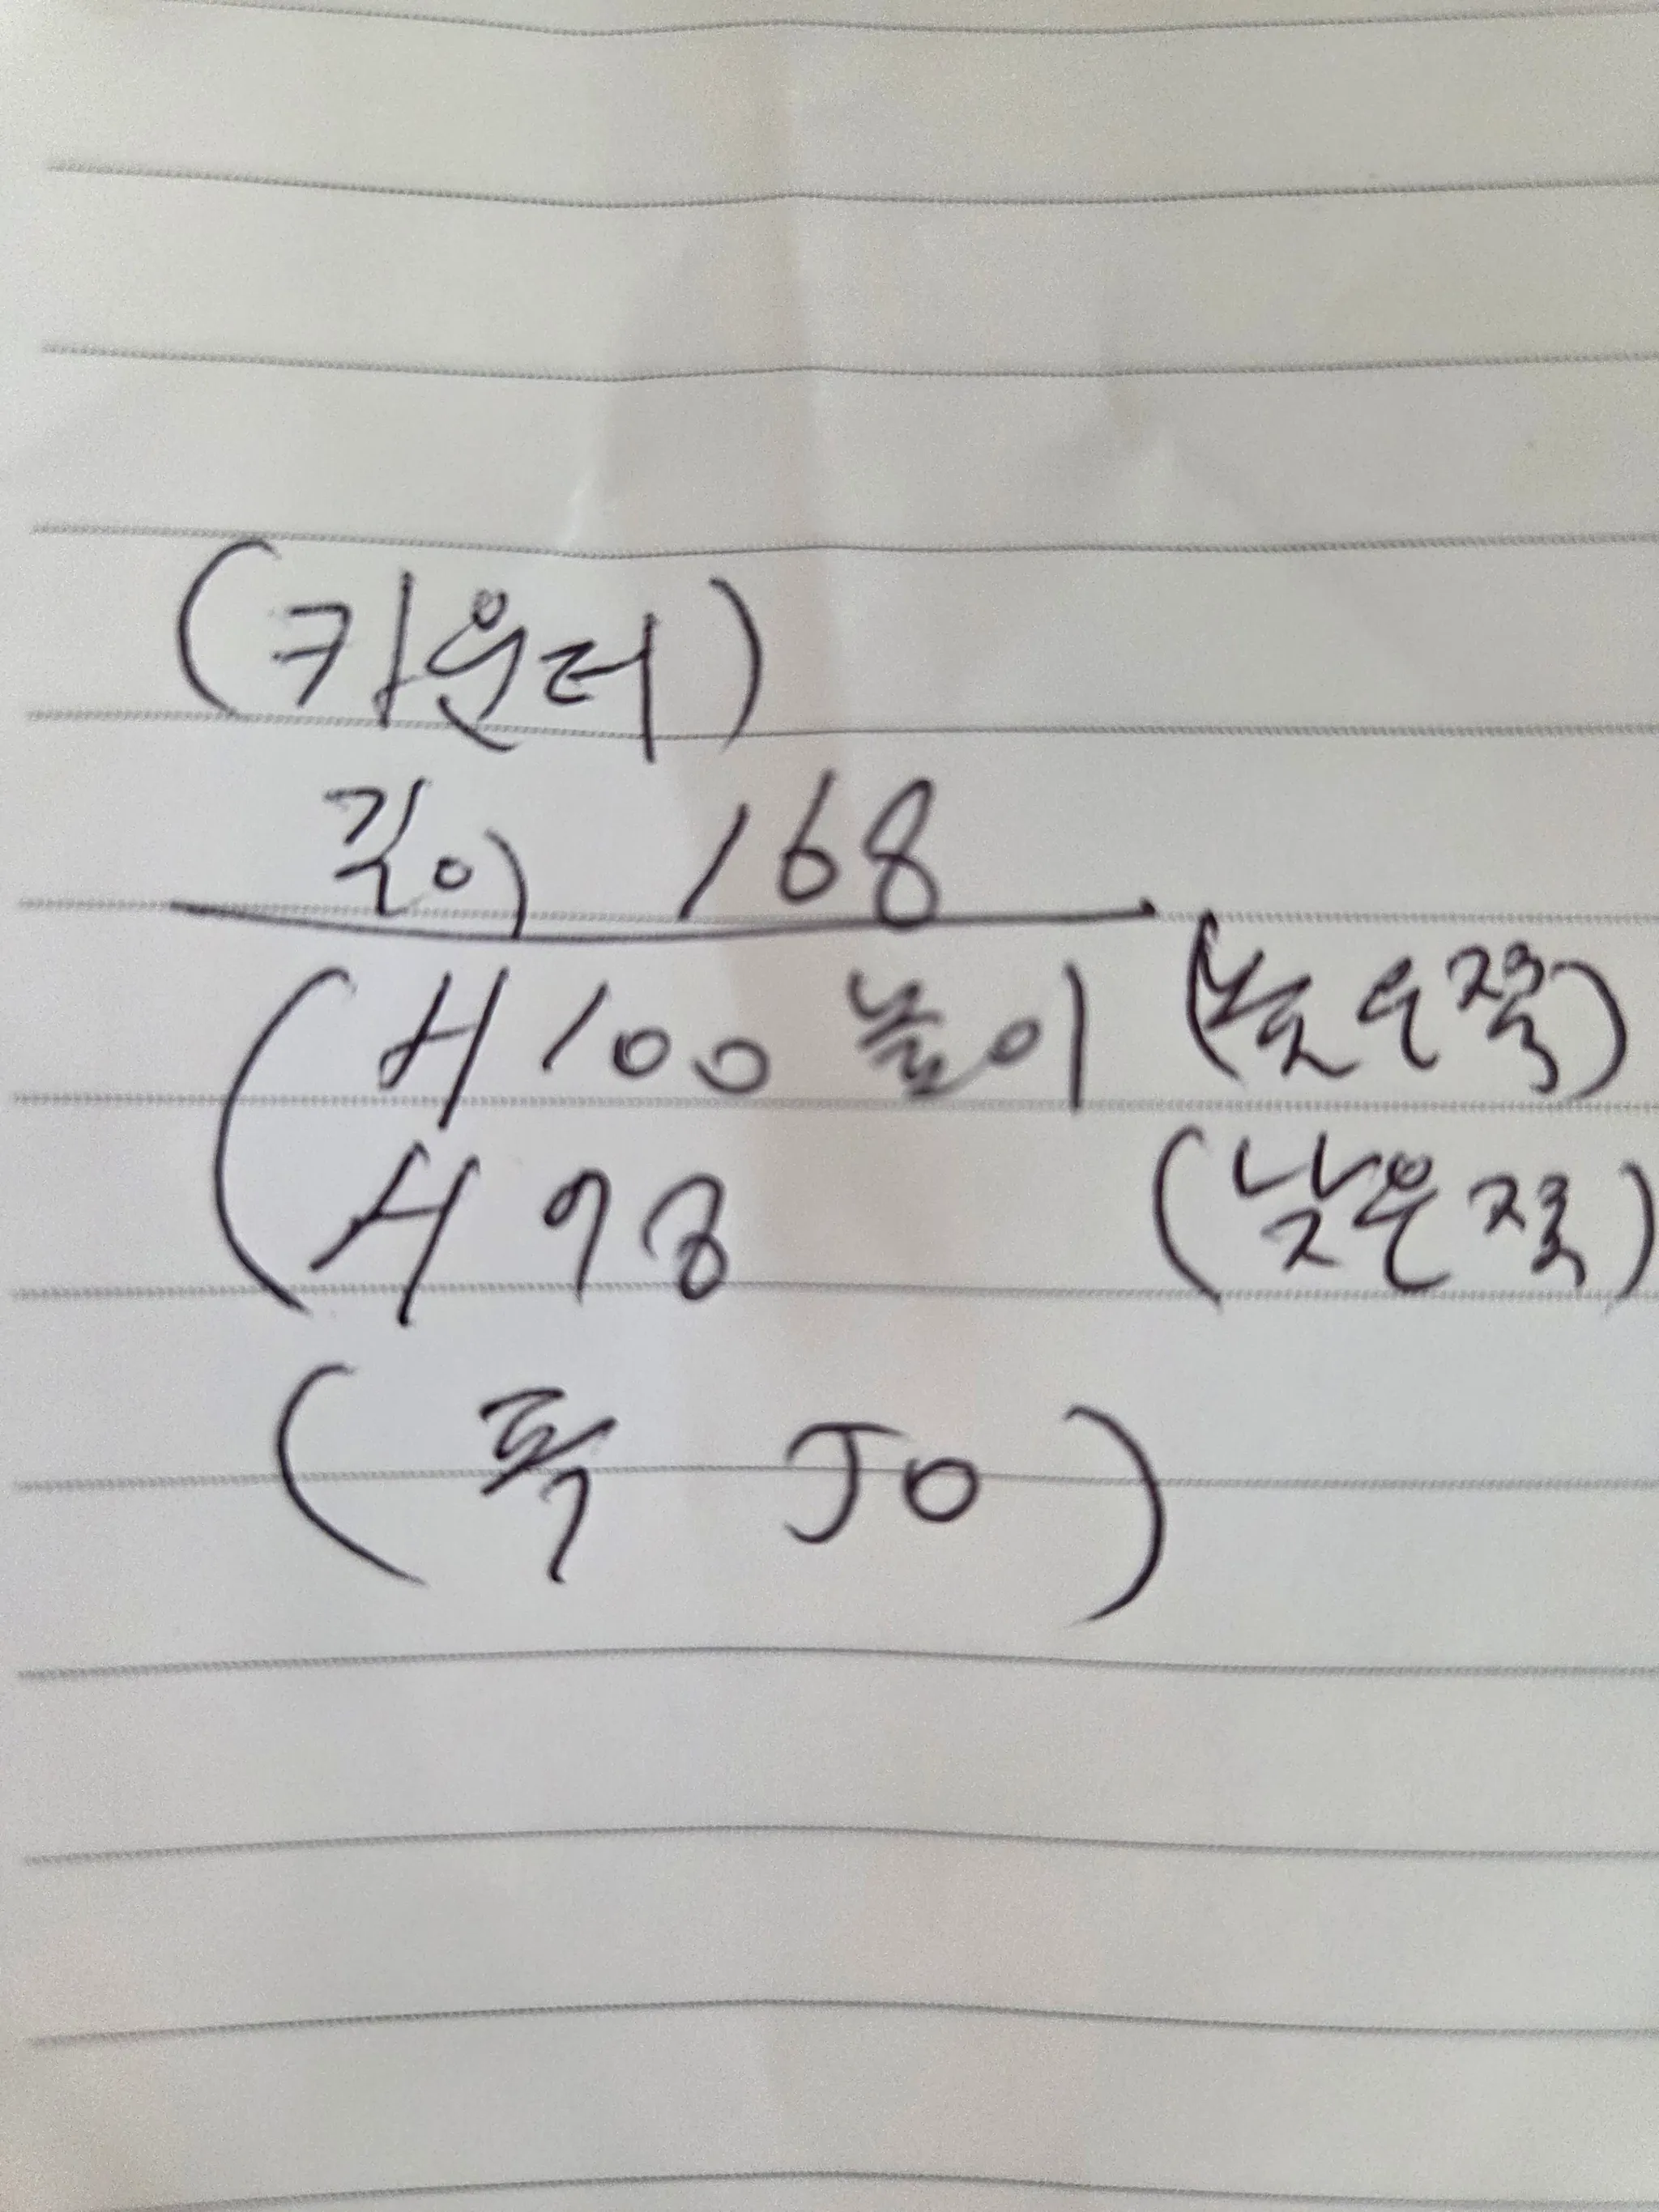 (카운터)
길이 168
(H 100 높이 (높은쪽)
H 98 (낮은쪽)
(폭 50)